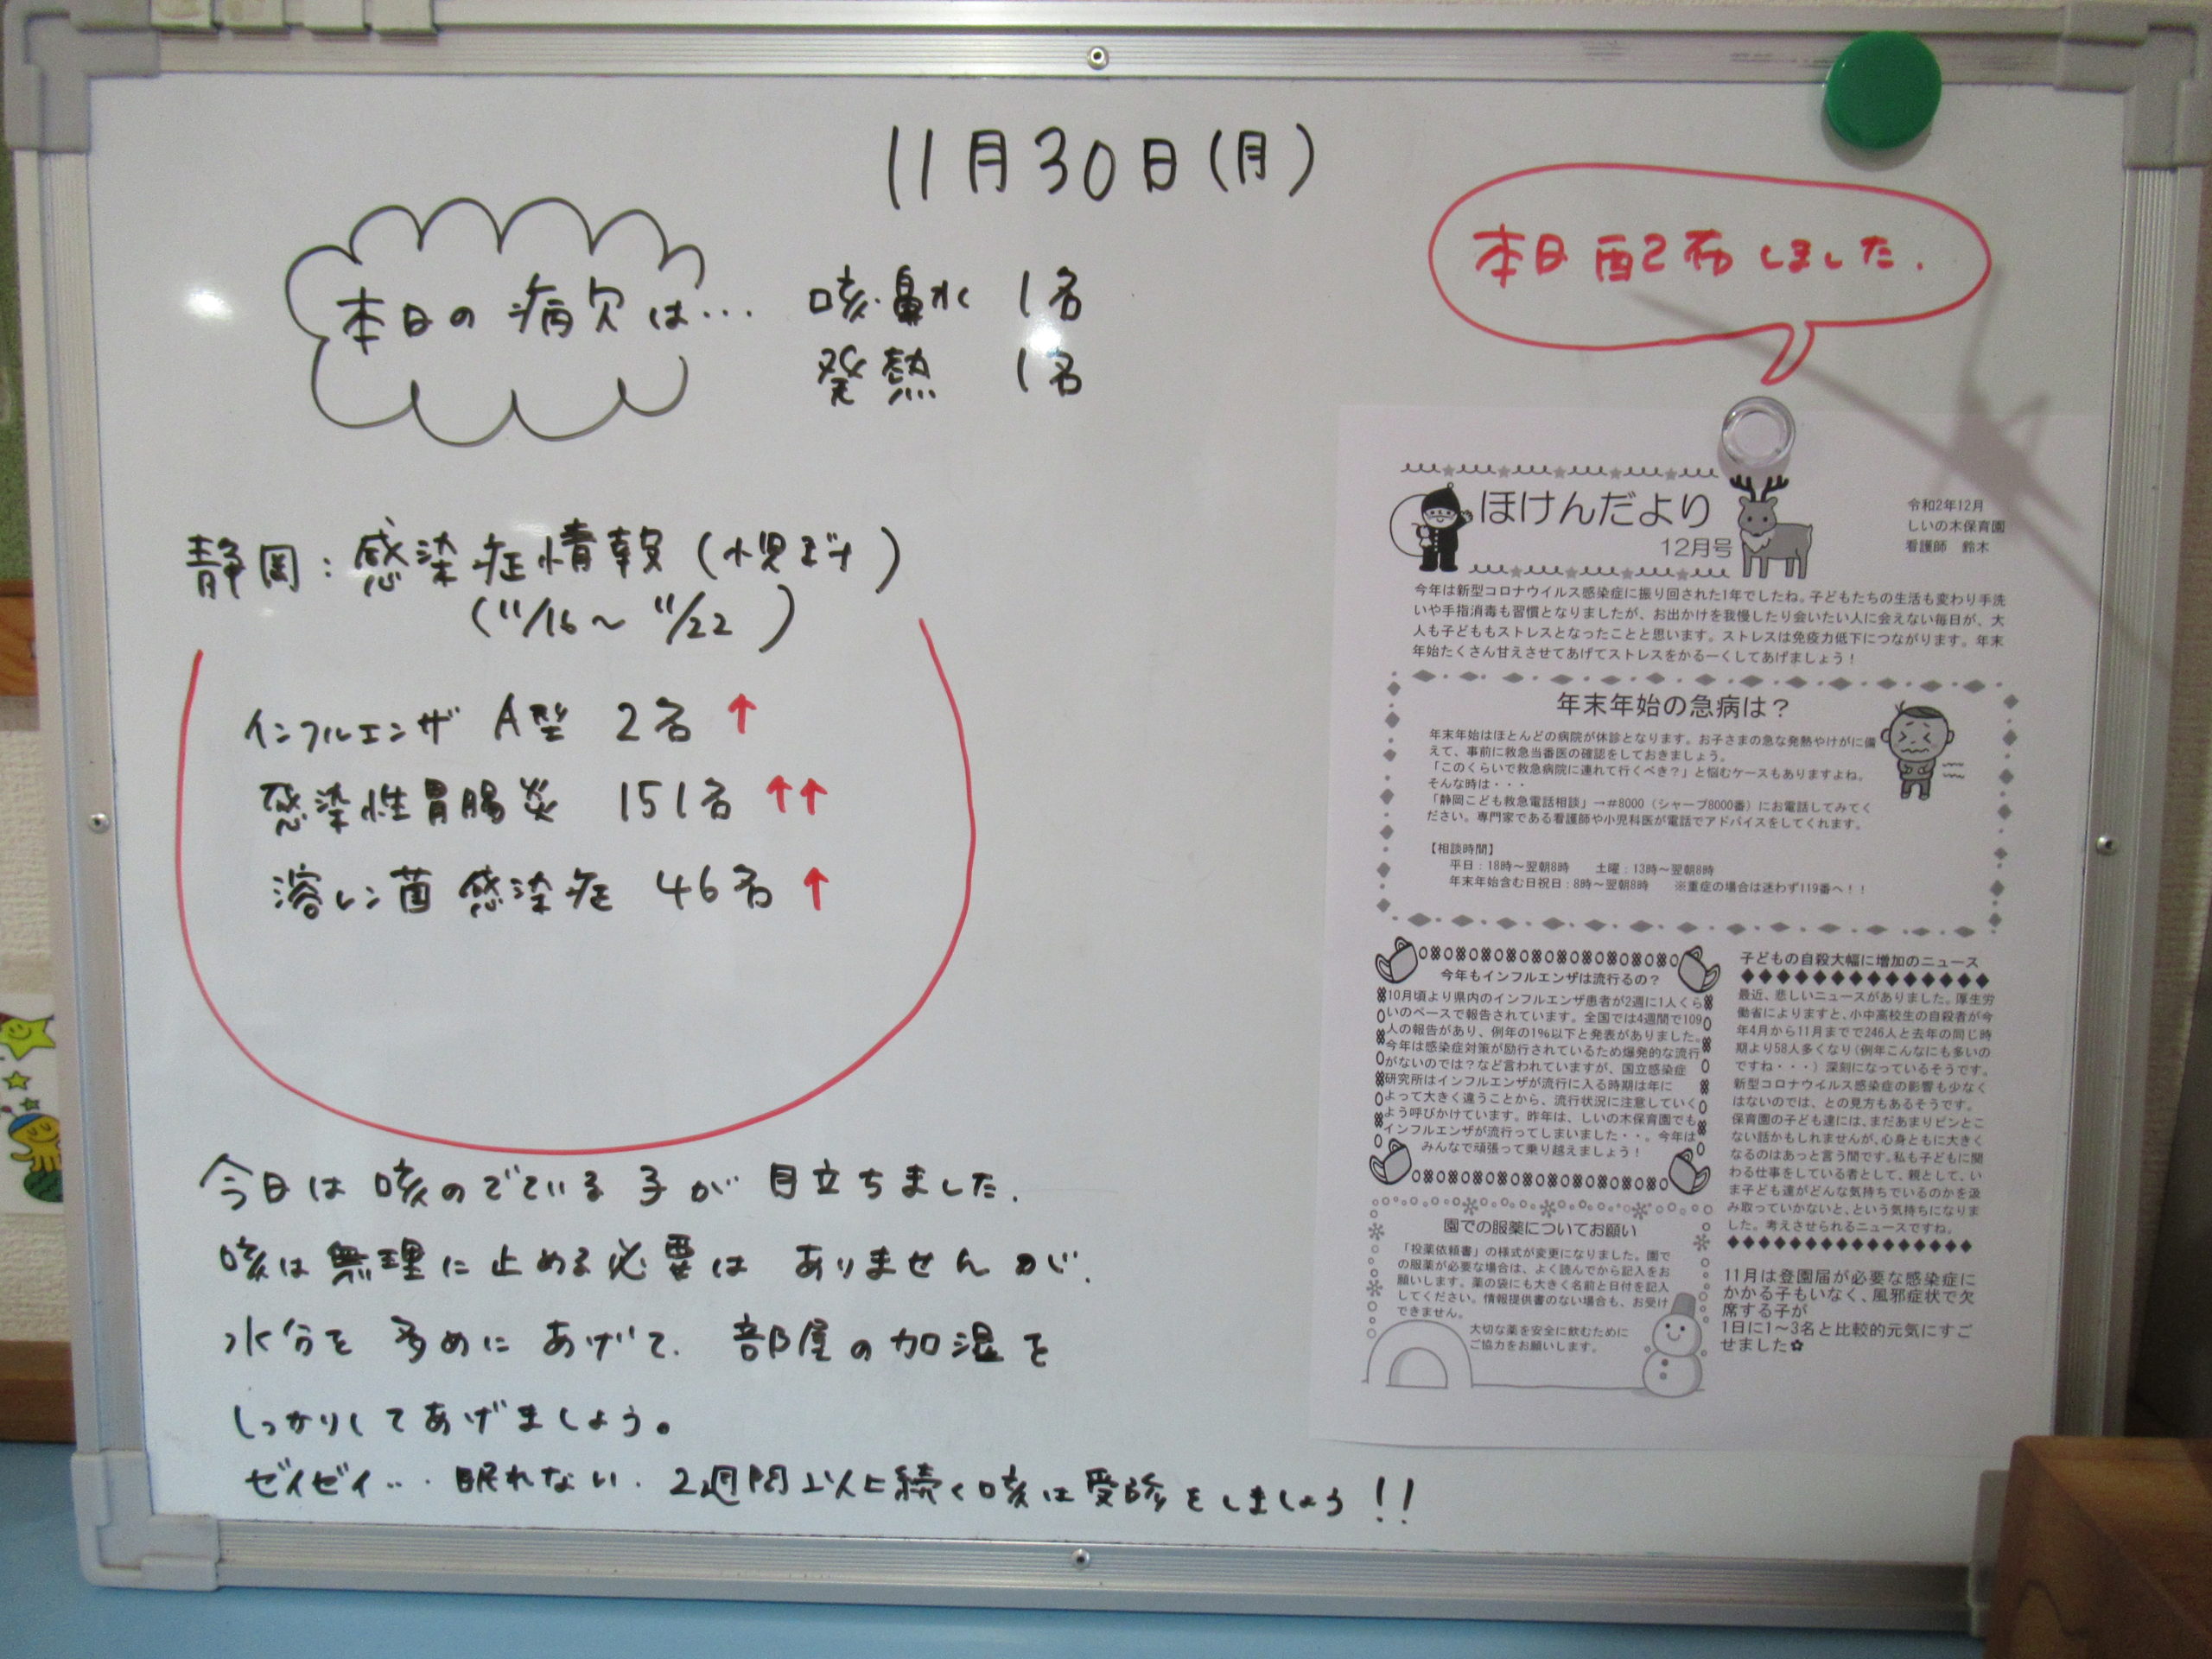 11月30日(月)
本日の病欠は… 咳・鼻水 1名
発熱 1名
本日配布しました.
静岡:感染症情報(小児科)
(11/16～11/22)
インフルエンザ A型 2名 ↑
感染性胃腸炎 151名 ↑↑
溶レン菌感染症 46名 ↑
今日は咳のでている子が目立ちました.
咳は無理に止める必要はありませんが.
水分を多めにあげて.部屋の加湿を
しっかりしてあげましょう。
ゼイゼイ…眠れない.2週間以上続く咳は受診をしましょう!!
ほけんだより
12月号
令和2年12月
しいの木保育園
看護師 鈴木
今年は新型コロナウイルス感染症に振り回された1年でしたね。子どもたちの生活も変わり手洗
いや手指消毒も習慣となりましたが、お出かけを我慢したり会いたい人に会えない毎日が、大
人も子どももストレスとなったことと思います。ストレスは免疫力低下につながります。年末
年始たくさん甘えさせてあげてストレスをかるーくしてあげましょう！
年末年始の急病は？
年末年始はほとんどの病院が休診となります。お子さまの急な発熱やけがに備
えて、事前に救急当番医の確認をしておきましょう。
「このくらいで救急病院に連れて行くべき？」と悩むケースもありますよね。
そんな時は・・・
「静岡こども救急電話相談」→＃8000（シャープ8000番）にお電話してみてく
ださい。専門家である看護師や小児科医が電話でアドバイスをしてくれます。
【相談時間】
平日：18時～翌朝8時 土曜：13時～翌朝8時
年末年始含む日祝日：8時～翌朝8時 ※重症の場合は迷わず119番へ！！
今年もインフルエンザは流行るの？
10月頃より県内のインフルエンザ患者が2週に1人くら
いのペースで報告されています。全国では4週間で109
人の報告があり、例年の1%以下と発表がありました。
今年は感染症対策が励行されているため爆発的な流行
がないのでは？など言われていますが、国立感染症
研究所はインフルエンザが流行に入る時期は年に
よって大きく違うことから、流行状況に注意していく
よう呼びかけています。昨年は、しいの木保育園でも
インフルエンザが流行ってしまいました・・。今年は
みんなで頑張って乗り越えましょう！
園での服薬についてお願い
「投薬依頼書」の様式が変更になりました。園で
の服薬が必要な場合は、よく読んでから記入をお
願いします。薬の袋にも大きく名前と日付を記入
してください。情報提供書のない場合も、お受け
できません。
大切な薬を安全に飲むために
ご協力をお願いします。
子どもの自殺大幅に増加のニュース
最近、悲しいニュースがありました。厚生労
働省によりますと、小中高校生の自殺者が今
年4月から11月までで246人と去年の同じ時
期より58人多くなり（例年こんなにも多いの
ですね・・・）深刻になっているそうです。
新型コロナウイルス感染症の影響も少なく
はないのでは、との見方もあるそうです。
保育園の子ども達には、まだあまりピンとこ
ない話かもしれませんが、心身ともに大きく
なるのはあっと言う間です。私も子どもに関
わる仕事をしている者として、親として、い
ま子ども達がどんな気持ちでいるのかを汲
み取っていかないと、という気持ちになりま
した。考えさせられるニュースですね。
11月は登園届が必要な感染症に
かかる子もいなく、風邪症状で欠
席する子が
1日に1～3名と比較的元気にすご
せました✿